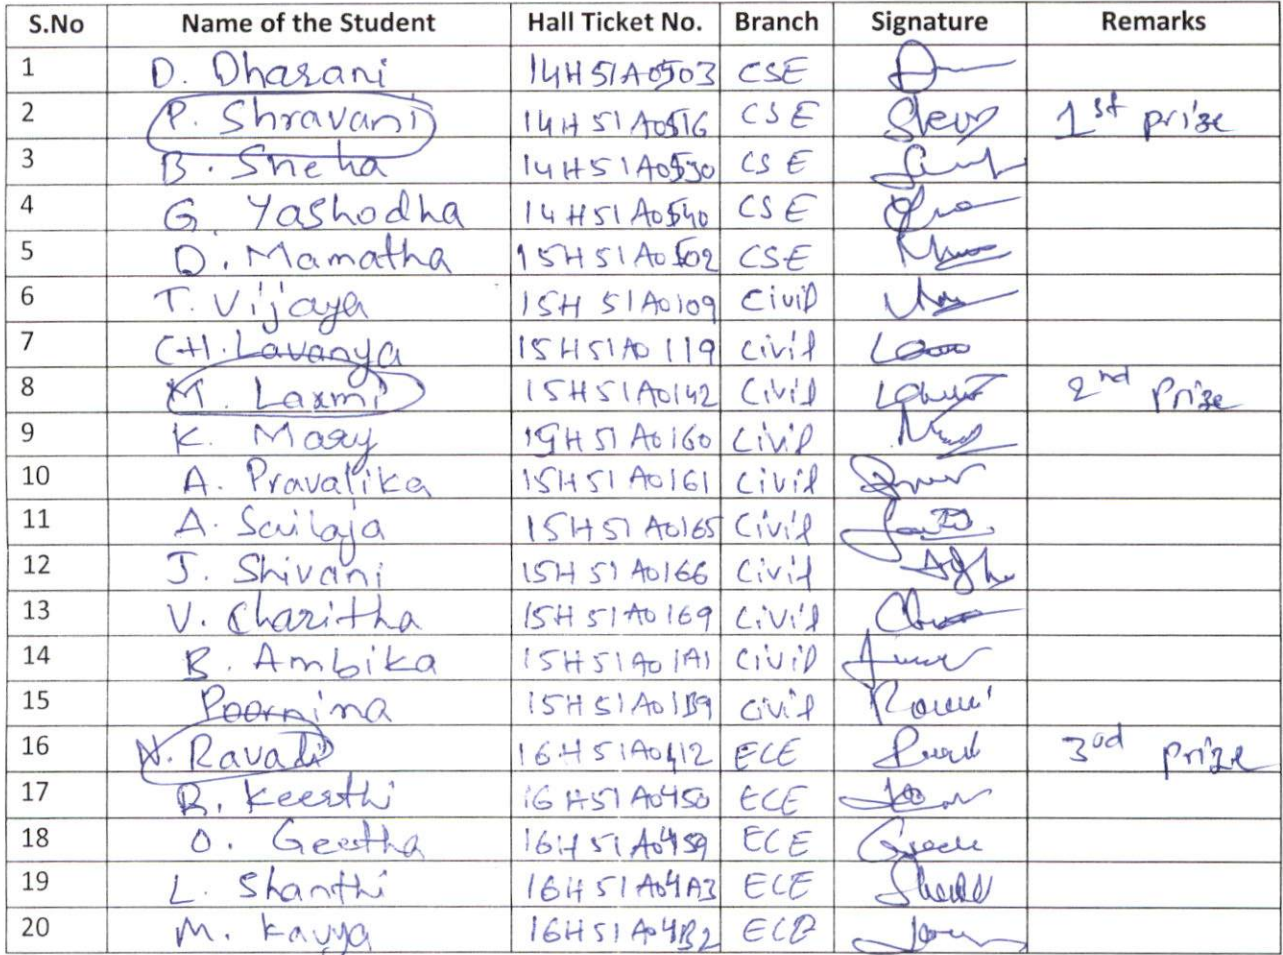 S.No Name of the Student Hall Ticket No. Branch Signature Remarks
1 D. Dharani 14H51A0503 CSE
2 P. Shravani 14H51A0516 CSE 1st prize
3 B. Sneha 14H51A0530 CSE
4 G. Yashodha 14H51A0540 CSE
5 D. Mamatha 15H51A0502 CSE
6 T. Vijaya 15H51A0109 Civil
7 CH. Lavanya 15H51A0119 Civil
8 M. Laxmi 15H51A0142 Civil 2nd Prize
9 K. Mary 19H51A0160 Civil
10 A. Pravalika 15H51A0161 Civil
11 A. Sailaja 15H51A0165 Civil
12 J. Shivani 15H51A0166 Civil
13 V. Charitha 15H51A0169 Civil
14 B. Ambika 15H51A01A1 Civil
15 Poornina 15H51A01B9 Civil
16 N. Ravali 16H51A0412 ECE 3rd prize
17 R. Keerthi 16H51A0450 ECE
18 O. Geetha 16H51A0459 ECE
19 L. Shanthi 16H51A04A3 ECE
20 M. Kavya 16H51A04B2 ECE